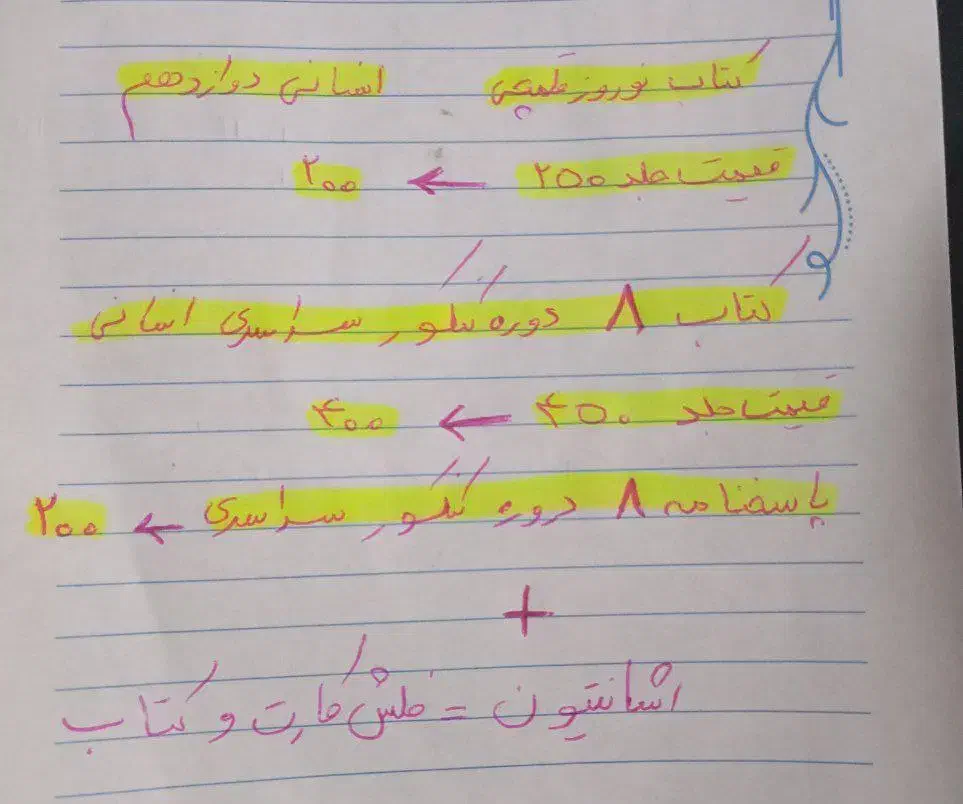 کتاب نوروز قلمچی انسانی دوازدهم
قیمت جلد ۲۵۰ ← ۲۰۰
کتاب ۸ دوره کنکور سراسری انسانی
قیمت جلد ۴۵۰ ← ۴۰۰
پاسخنامه ۸ دوره کنکور سراسری ← ۲۰۰
+
اشانتیون = فلش کارت و کتاب